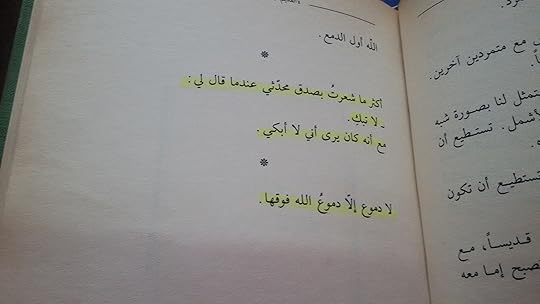 الله أول الدمع.
*
أكثر ما شعرتُ بصدق محدّثي عندما قال لي :
ـ لا تبكِ.
مع أنه كان يرى أني لا أبكي.
*
لا دموع إلّا دموعُ الله فوقها.
مع متمردين آخرين.
تمثل لنا بصورة شبه
لأشمل. تستطيع أن
تستطيع أن تكون
قديساً، مع
صبح إما معه